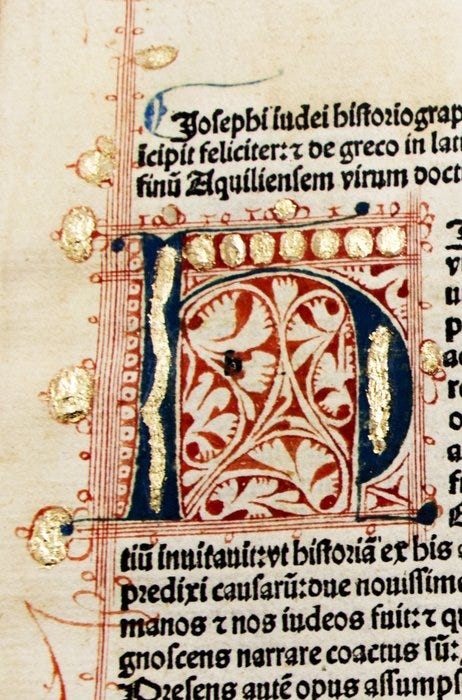 Josephi iudei historiograp
icipit feliciter: ⁊ de greco in lat
finū Aquiliensem virum doct
h
tiū inuitauit: vt historiā ex his
predixi causarū: due nouissime
manos ⁊ nos iudeos fuit: ⁊ qu
gnoscens narrare coactus sū:
Presens autē opus assumps